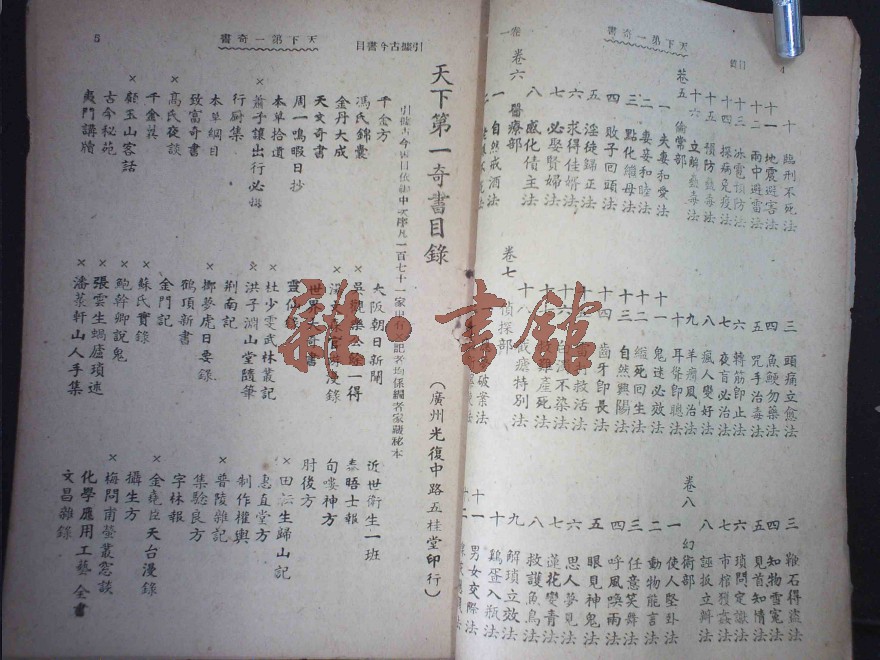 天下第一奇書
目錄
卷一
十 臨刑不死法
十一 地震避害法
十二 雨中避雷法
十三 冰雹預防法
十四 探病免疫法
十五 預防蠱毒法
十六 立解蠱毒法
卷五 倫常部
一 夫妻和愛法
二 妻妾和睦法
三 點化繼母法
四 敗子回頭法
五 淫徒歸正法
六 求得佳婿法
七 必娶賢婦法
八 感化債主法
卷六 醫療部
一 自然戒酒法
三 頭痛立愈法
四 魚鯁勿藥法
五 咒手治毒法
六 轉筋即止法
七 夜盲必治法
八 瘋人變好法
九 羊癇風治法
十 耳聾即聰法
十一 鬼迷必效法
十二 縊死回生法
十三 自然興陽法
十四 齒牙即長法
卷七 偵探部
三 鞭石得盜法
四 知物雪冤法
五 見首知情法
六 鎖問定讞法
七 市棺獲姦法
八 誣扳立辯法
卷八 幻術部
一 使人堅卧法
二 動物能言法
三 任意笑舞法
四 呼風喚雨法
五 眼見神鬼法
六 思人夢見法
七 蓮花變青法
八 救護魚鳥法
九 解鎖立效法
十 鷄蛋入瓶法
十一 男女交際法
天下第一奇書
引據古今書目
5
天下第一奇書目錄
(廣州光復中路五桂堂印行)
千金方
馮氏錦囊
金丹大成
天文奇書
周一鳴暇日抄
本草拾遺
×蕭子讓出行必攜
行厨集
本草綱目
致富奇書
×高氏夜談
千金裘
×顧玉山客話
古今秘苑
夷門講牘
大阪朝日新聞
世界大奇書
靈仙錄
×杜少雯武林叢記
×洪子淵山堂隨筆
荆南記
×鄭夢虎日要錄
鶴頂新書
金門記
×蘇氏實錄
×鮑幹卿說鬼
×張雲生蝸廬瑣述
×潘萊軒山人手集
近世衛生一班
泰晤士報
句嘍神方
肘後方
×田仁生歸山記
惠直堂方
制作權輿
×普陵雜記
集驗良方
字林報
×金堯臣天台漫錄
攝生方
×梅問甫螢叢窓談
化學應用工藝全書
文昌雜錄
雜·書館